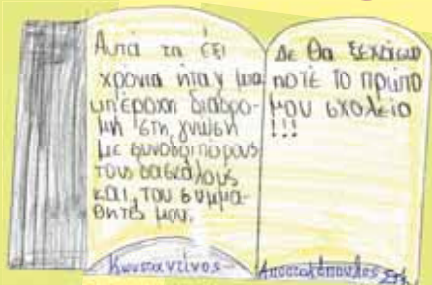 Αυτά τα έξι
χρόνια ήταν μια
υπέροχη διαδρο-
μή στη γνώση
με συνοδοιπόρους
τους δασκάλους
και του συμμα-
θητές μου.
Δε θα ξεχάσω
ποτέ το πρώτο
μου σχολείο
!!!
Κωνσταντίνος Αποστολόπουλος Στ1